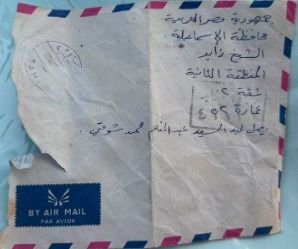 جمهورية مصر العربية
محافظة الإسماعيلية
الشيخ زايد
المنطقة الثانية
شقة ١٠٢
عمارة ٤٥٢
يصل ليد السيد عبد المنعم محمد شوقي.
BY AIR MAIL
PAR AVION